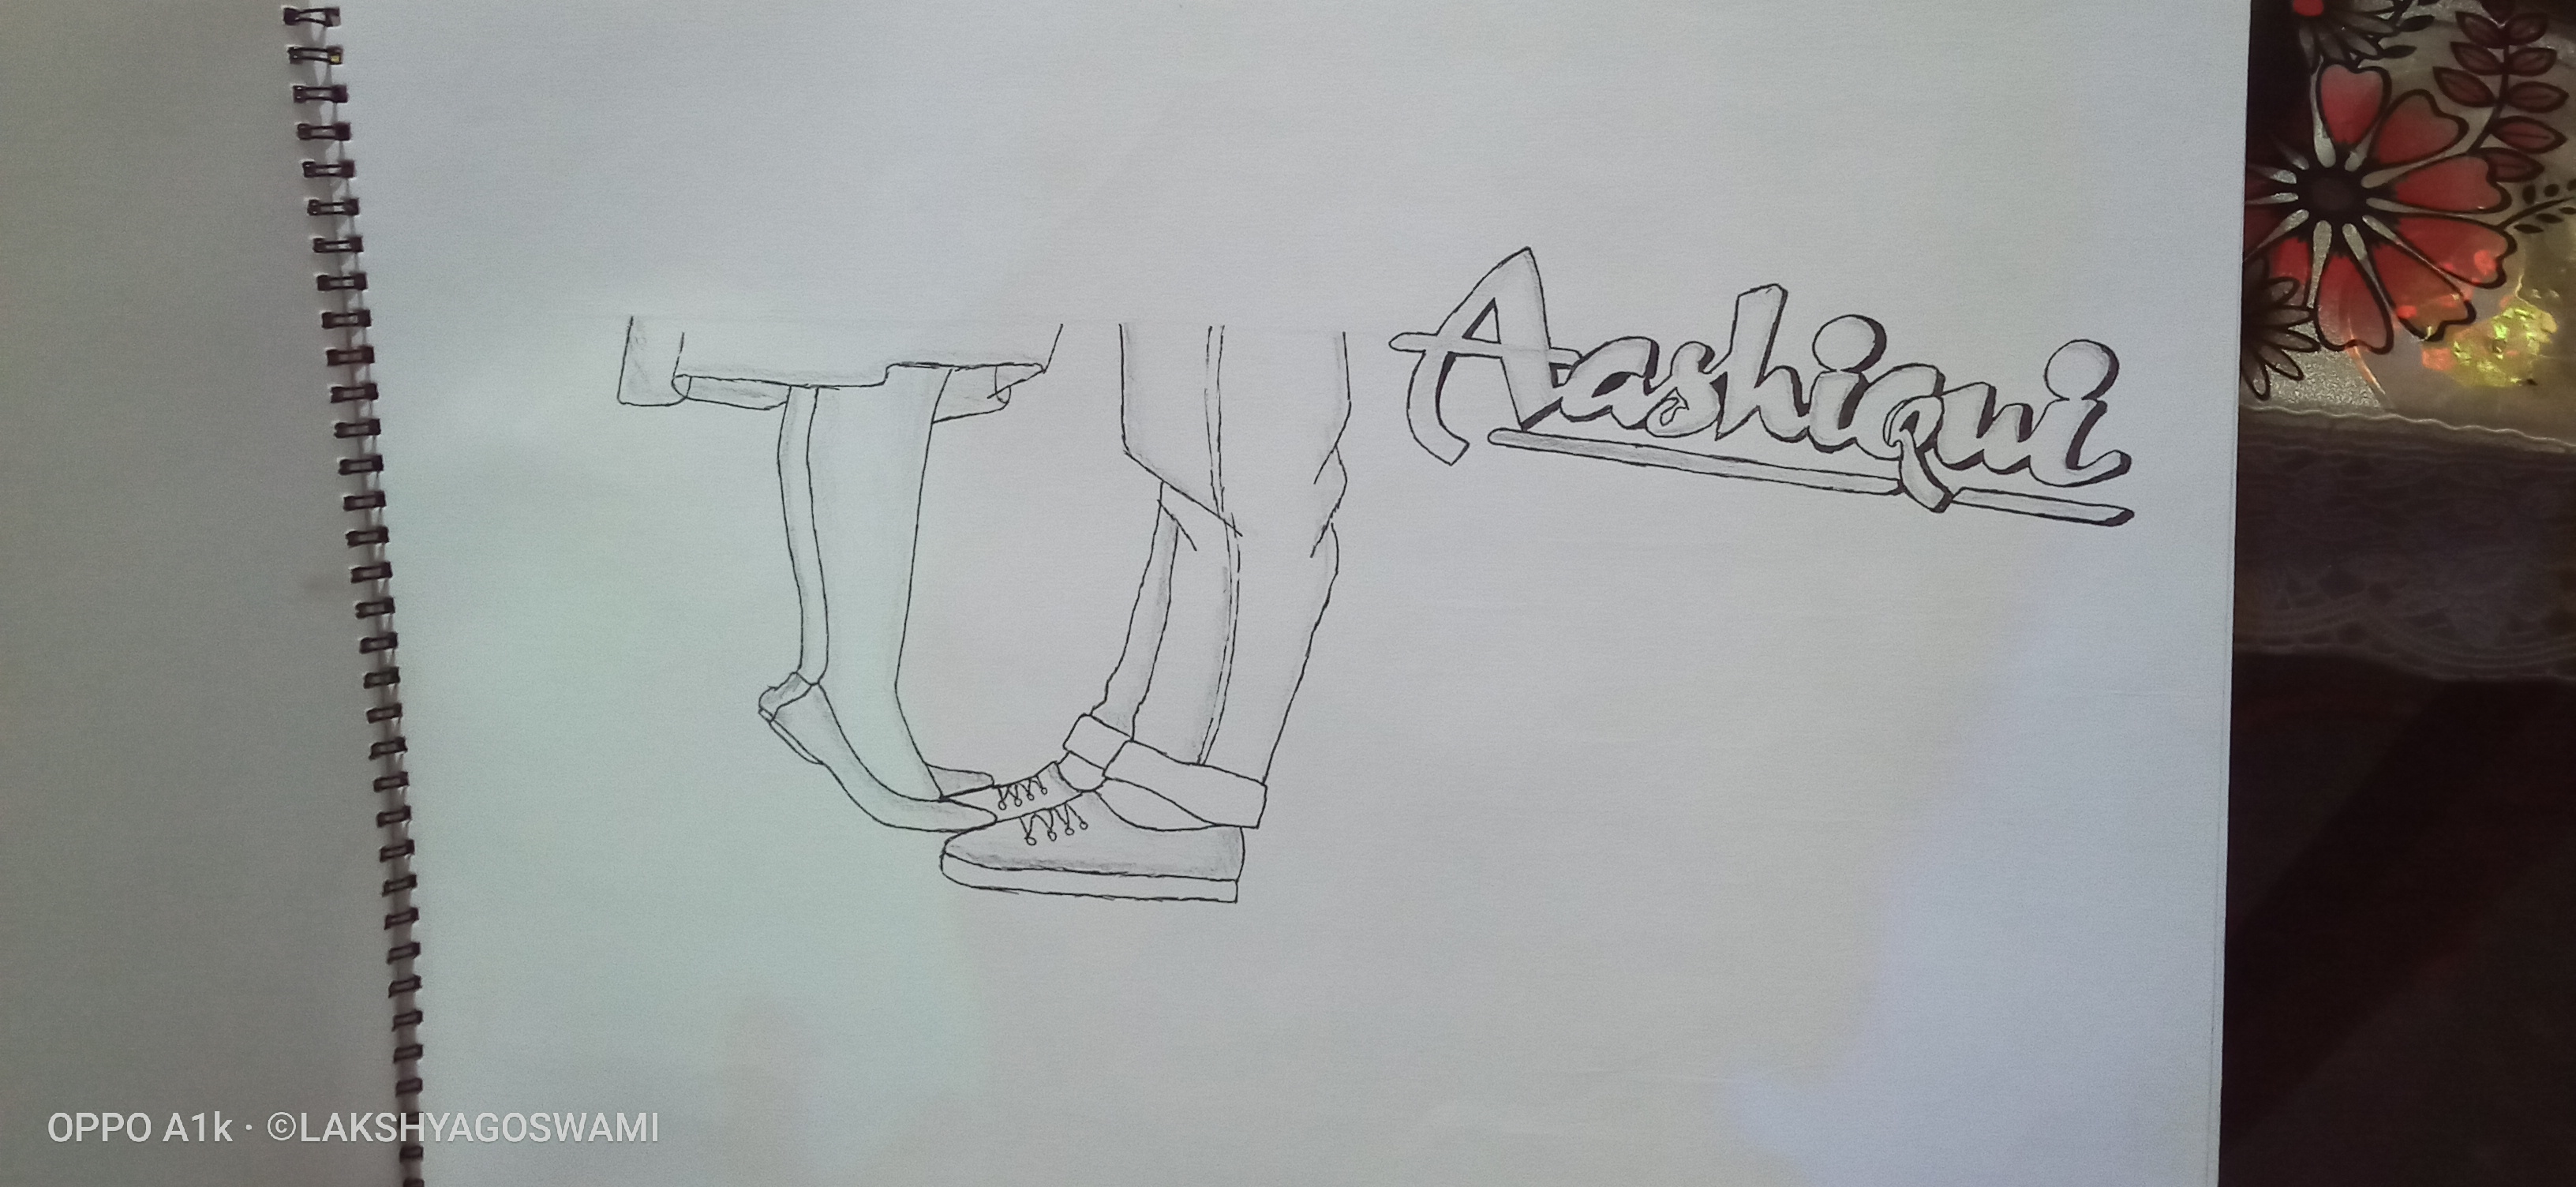 Aashiqui
OPPO A1k · ©LAKSHYAGOSWAMI